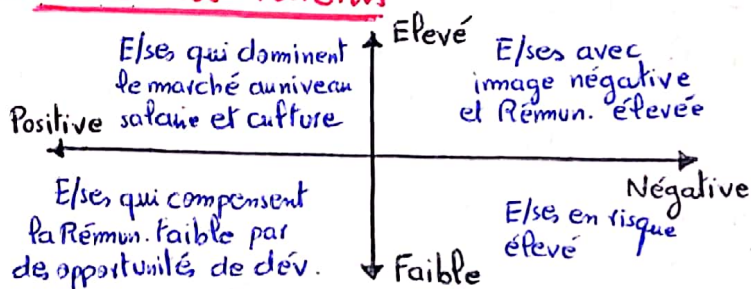 Elevé
E/ses qui dominent
le marché au niveau
salaire et culture
E/ses avec
image négative
et Rémun. élevée
Positive
Négative
E/ses qui compensent
la Rémun. faible par
des opportunités de dév.
E/ses en risque
élevé
Faible